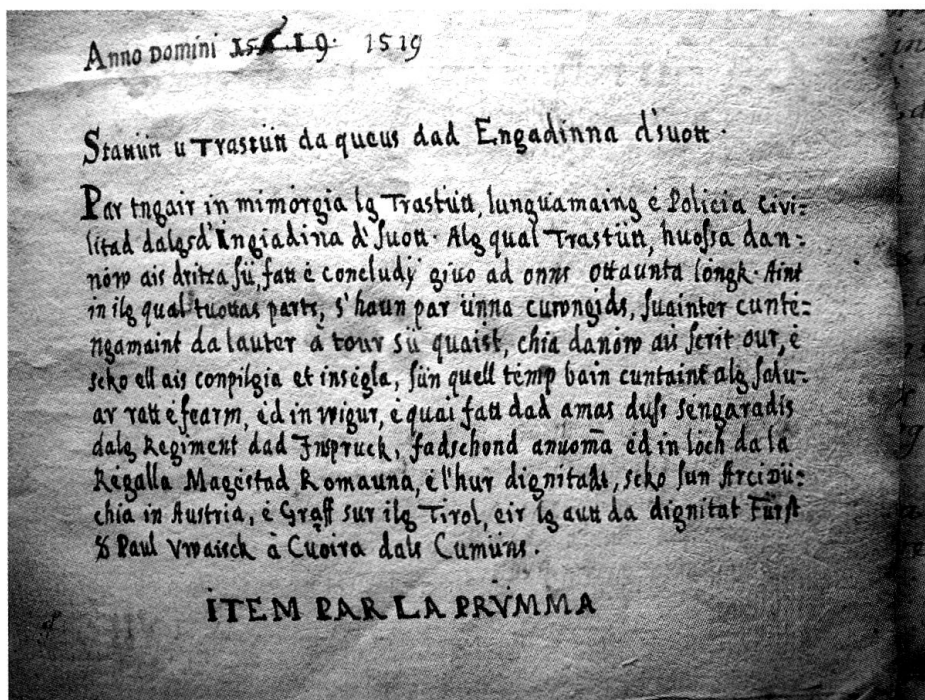 Anno Domini 1519. 1519
Stattütt u Trastütt da queus dad Engadinna d'suott.
Par tngair in mimórgia lg Trastütt, lunguamaing é Policia Civi:
litad dalgs d'Ingiadina d'suott. Alg qual Trastütt, huossa dan:
nôw ais dritza sü, fatt é concludÿ giuo ad onns ottaunta lôngk. Aint
in ilg qual tuottas parts, s'haun par ünna cuwngids, suainter cunté:
ngamaint da lauter à tour sü quaist, chia danôw ais scrit our, é
scko ell ais conpilgia et inségla, sün quell témp bain cuntaint alg salu:
ar ratt é fearm, éd in wigur, é quai fatt dad amas duss séngaradis
dalg Regiment dad Jnspruck, fadschond anuom̄a éd in lôch da la
Régalla Magéstad Romauna, é l'hur dignitads, scko sun Arcidü:
chia in Austria, é Graff sur ilg Tirol, eir lg autt da dignitat Fürst
& Paul Vwaisck à Cuoira dals Cumüns.
ITEM PAR LA PRVMMA